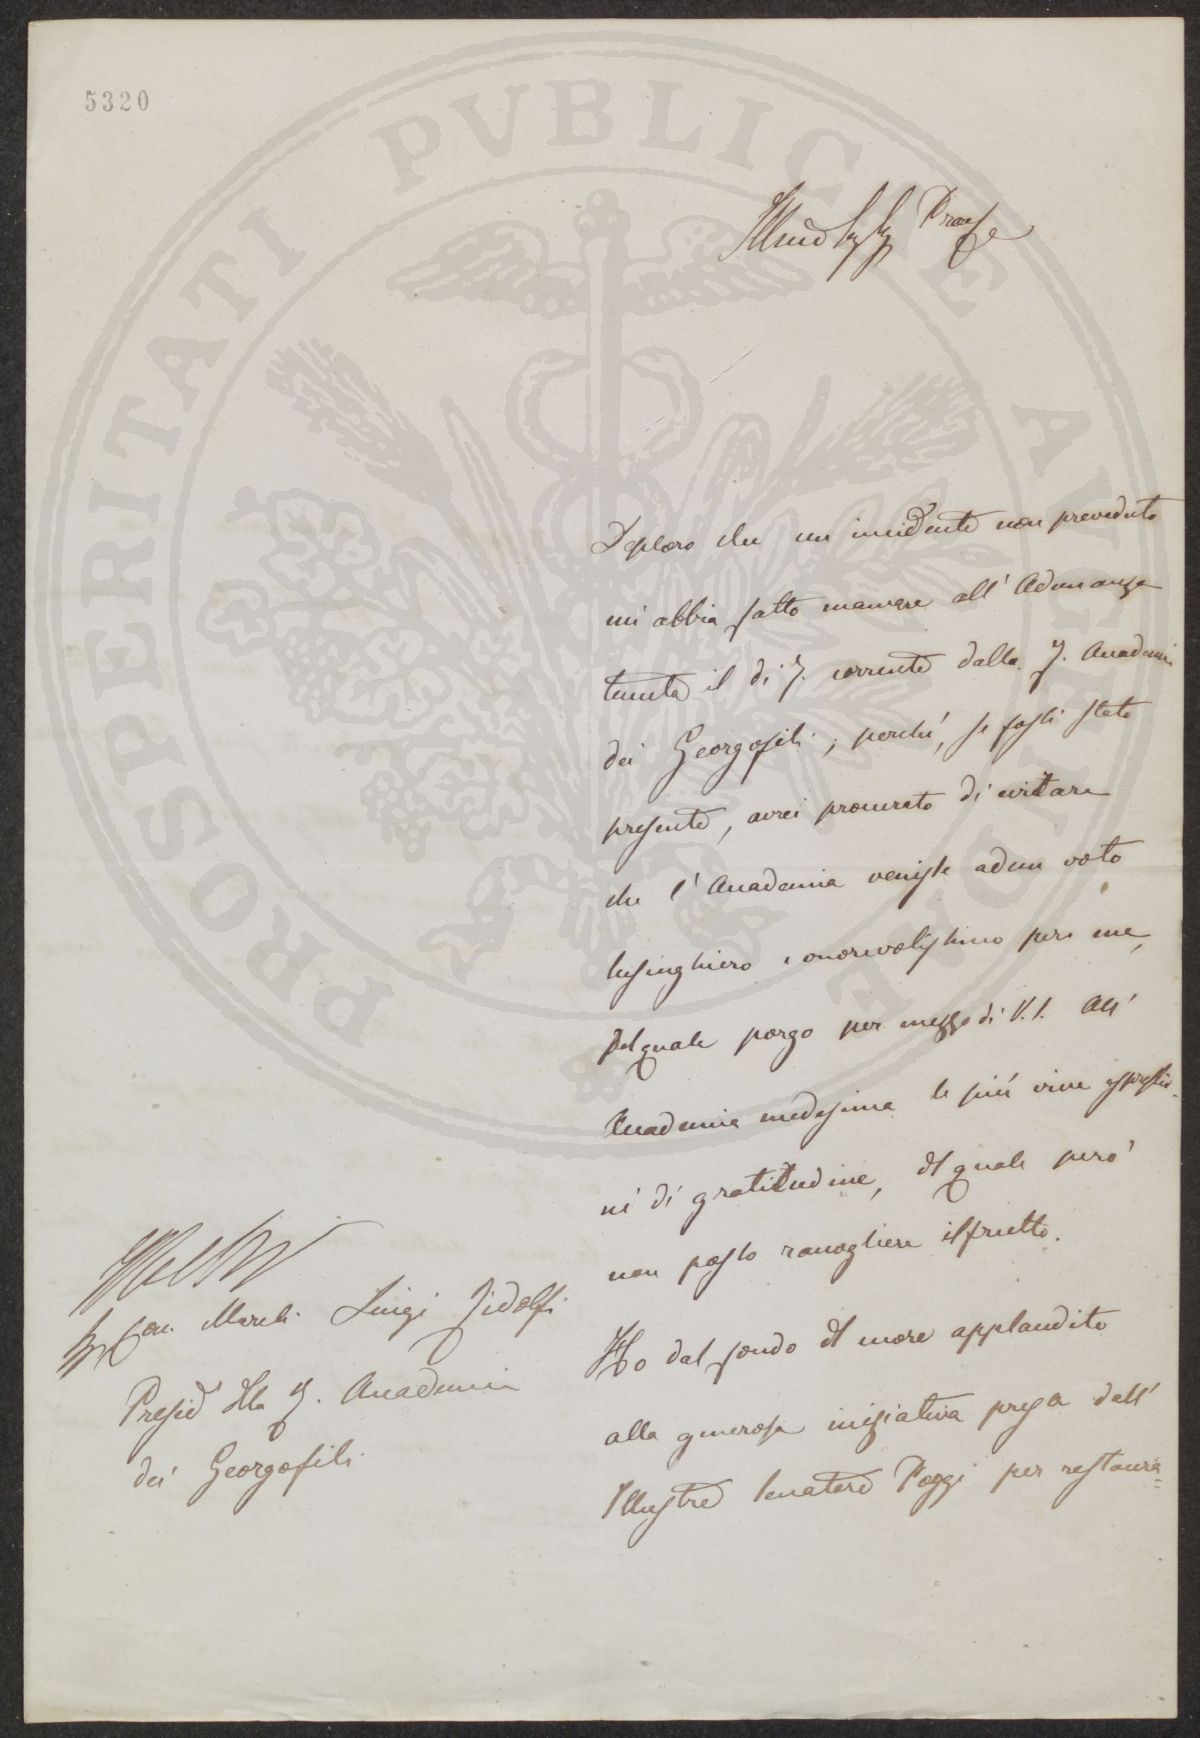 5320
PROSPERITATI PVBLICAE AVGENDAE
Deploro che un incidente non preveduto
mi abbia fatto mancare all' Adunanza
tenuta il di 7. corrente dalla R. Accademia
dei Georgofili; perché, se fossi stato
presente, avrei procurato di evitare
che l' Accademia venisse ad un voto
lusinghiero e onorevolissimo per me,
pel quale porgo per mezzo di V.S. All'
Accademia medesima le più vive espressio-
ni di gratitudine, del quale però
non posso raccogliere il frutto.
Ho dal fondo del cuore applaudito
alla generosa iniziativa presa dall'
Illustre Senatore Poggi per restaura=
March. Luigi Ridolfi
Presid della R. Accademia
dei Georgofili